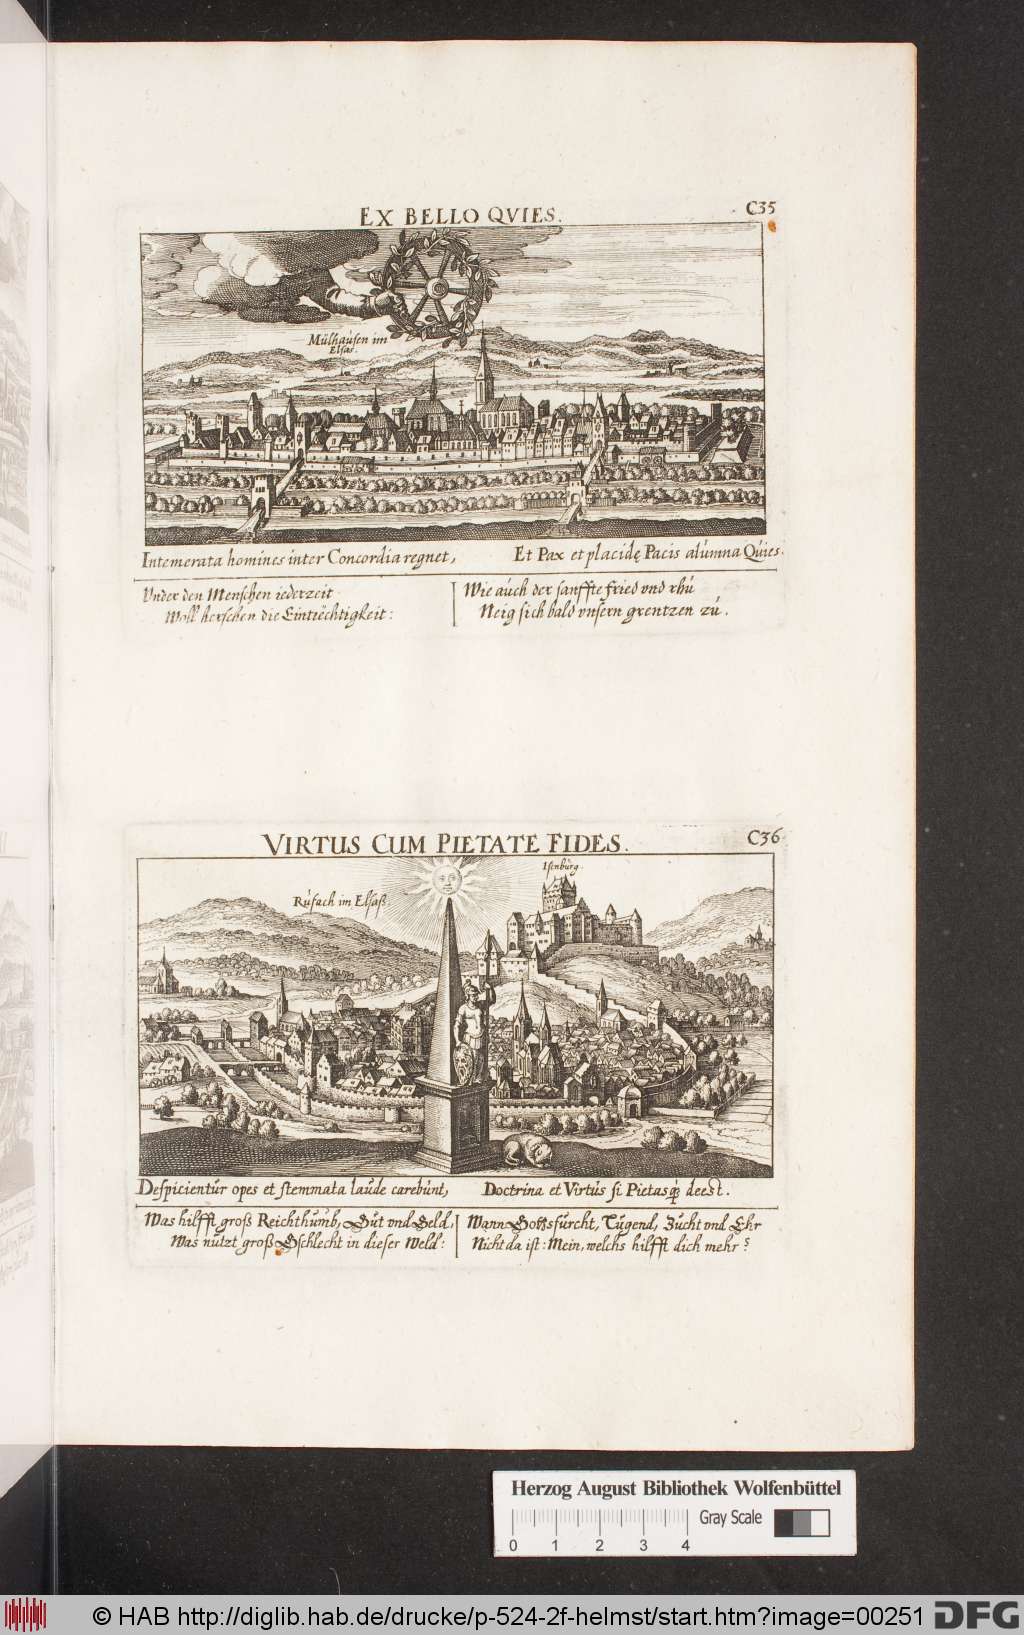 EX BELLO QVIES.
C35
Mülhausen im
Elsas.
Intemerata homines inter Concordia regnet,
Et Pax et placidę Pacis alumna Quies.
Vnder den Menschen iederzeit
Woll herschen die Eintrechtigkeit:
Wie auch der sanffte fried vnd rhu
Neig sich bald vnsern grentzen zu.
VIRTUS CUM PIETATE FIDES.
C36
Isenburg
Rufach im Elsaß.
Despicientur opes et stemmata laude carebunt,
Doctrina et Virtus si Pietasq́; deest.
Was hilfft groß Reichthumb, Gut vnd Geld,
Was nutzt groß Gschlecht in dieser Weld:
Wann Gottsfurcht, Tugend, Zucht vnd Ehr
Nicht da ist: Mein, welchs hilfft dich mehr?
Herzog August Bibliothek Wolfenbüttel
Gray Scale
0 1 2 3 4
© HAB http://diglib.hab.de/drucke/p-524-2f-helmst/start.htm?image=00251
DFG